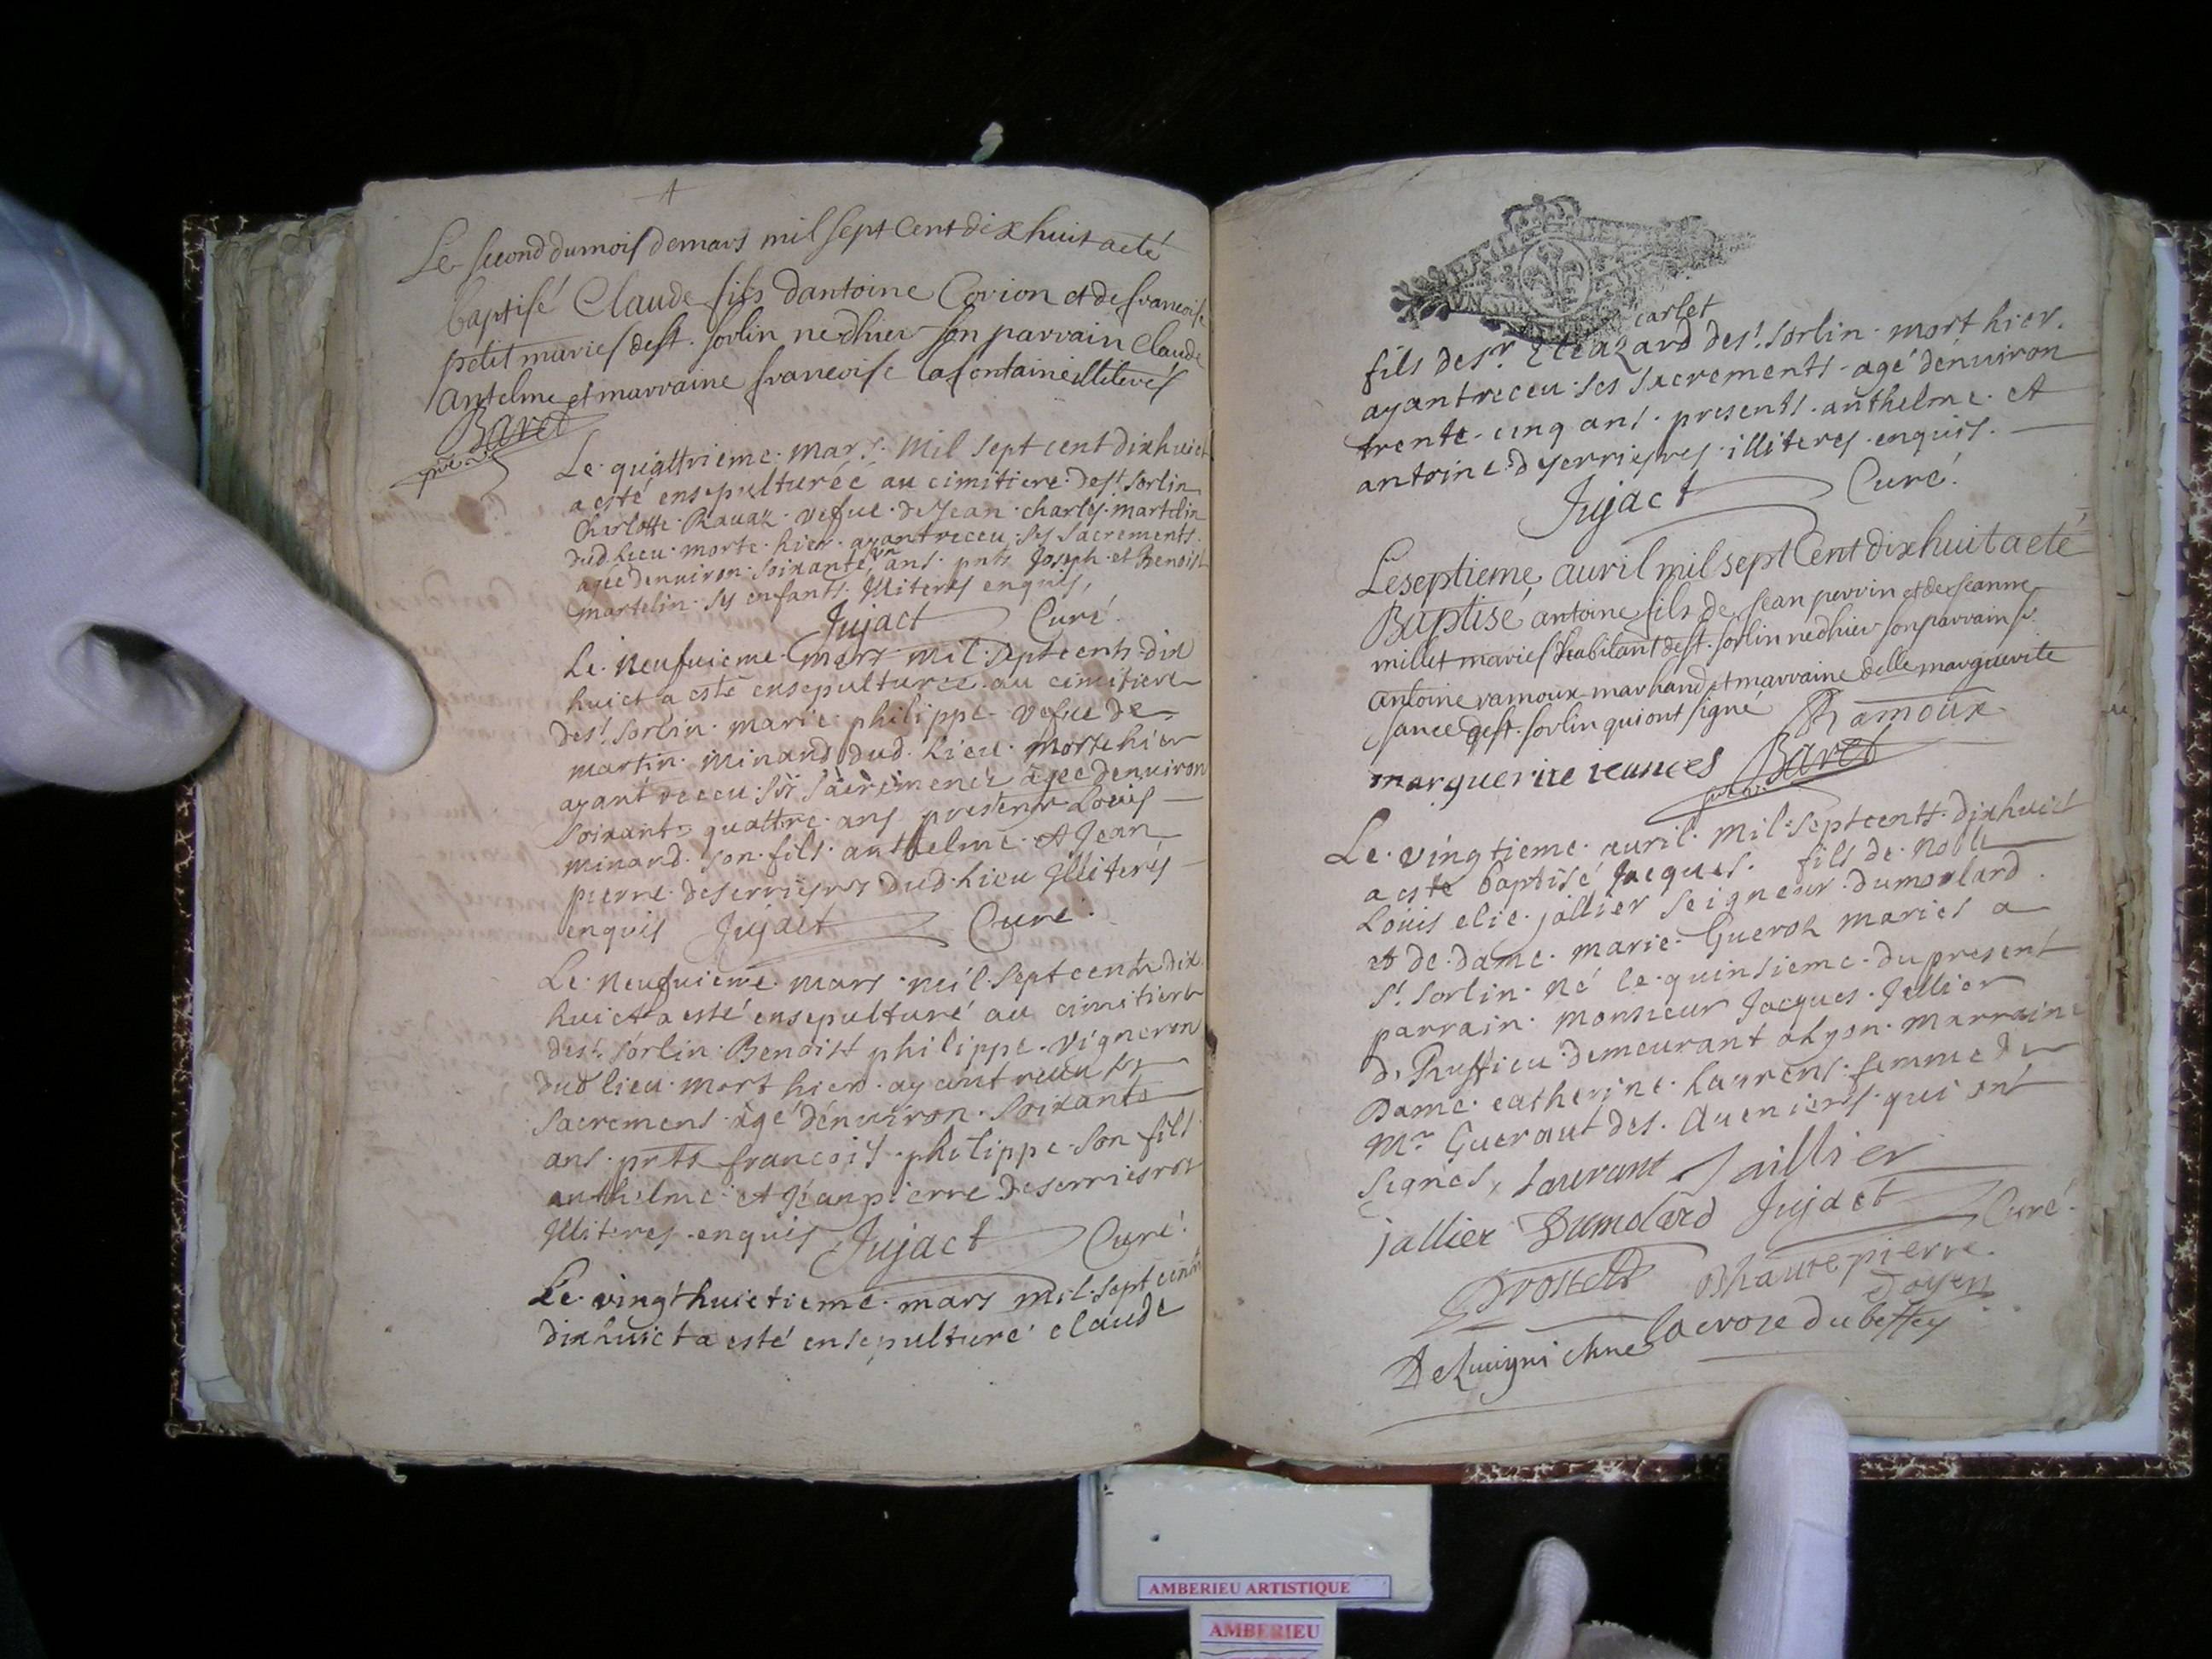 Le second du mois de mars mil sept Cent dix huit a eté
baptisé Claude fils dantoine Corion et de francoise
petit mariés de st. sorlin né dhier son parrain Claude
antelme et marraine francoise lafontaine illiterés
Baret
Le quattrieme mars mil sept cent dixhuict
a esté ensepulturéé au cimitiere de st sorlin
Charlotte Rauaz vefue de Jean charles martelin
dud lieu morte hier ayant receu ses sacrements
agée denuiron soixante un ans pnts Joseph et Benoist
martelin ses enfants Illiterés enquis,
Jujact Curé
Le neufuieme mars mil sept cents dix
huict a esté ensepulturée au cimitiere
de st sorlin marie philippe vefue de
martin minand dud lieu morte hier
ayant receu ses sacrements agée denuiron
soixante quattre ans presents Louis
minard son fils anthelme et Jean
pierre deserriesres dud lieu Illiterés
enquis Jujact Curé
Le neufuieme mars mil sept cents dix
huict a esté ensepulturé au cimitiere
de st sorlin Benoist philippe vigneron
dud lieu mort hier ayant receu ses
sacremens agé denuiron soixante
ans pnts francois philippe son fils
anthelme et Jean pierre deserriesres
Illiterés enquis Jujact Curé
Le vingt huictieme mars mil sept cents
dixhuict a esté ensepulturé claude
carlet
fils de sr Eleazard de st sorlin mort hier
ayant receu ses sacrements agé denuiron
trente cinq ans presents anthelme et
antoine dserriesres illiteres enquis
Jujact Curé
Le septieme auril mil sept Cent dix huit a eté
Baptisé antoine fils de Jean perrin et de Jeanne
millet mariés habitant de st. sorlin né dhier son parrain sr.
antoine ramoux marhand et marraine delle marguerite
Jance de st. sorlin qui ont signé Ramoux
marguerite Baret
Le vingtieme auril mil sept cents dixhuict
a este baptisé Jacques fils de noble
Louis elie jallier seigneur dumorlard
et de dame marie Gueroh mariés a
st sorlin né le quinsieme du present
parrain monsieur Jacques Jallier
de Ruffieu demeurant a Lyon marraine
Dame catherine Laurens femme de
Mr Gueraut des Aueniers qui ont
signés, Laurant Jaillier
jallier Dumolard Jujact Curé
Dhautepierre
doyen
lacroix dubeffey
AMBERIEU ARTISTIQUE
AMBERIEU